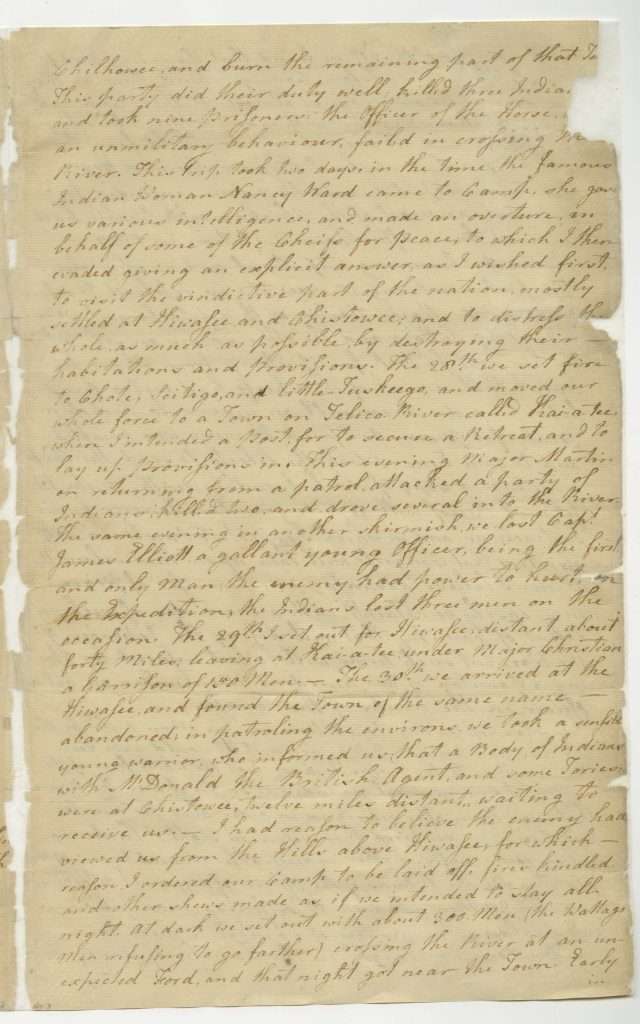 Chilhowee, and burn the remaining part of that To
This party did their duty well, killed three India
and took nine Prisoners. the Officer of the Horse,
an unmilitary behaviour, failed in crossing
River. This trip took two days; in the time, the famous
Indian Woman Nancy Ward came to Camp, she gave
us various intelligence, and made an overture, in
behalf of some of the Cheifs for Peace; to which I then
evaded giving an explicit answer, as I wished first,
to visit the vindictive part of the nation, mostly
settled at Hiwasee and Chistowee; and to distress the
whole, as much as possible, by destroying their —
habitations and Provisions. The 28th we set fire
to Chote, Scitigo, and little-Tuskeego, and moved our
whole force to a Town on Telico River called Kai-a-tee,
where I intended a Post, for to secure a Retreat, and to
lay up Provisions in. This evening Major Martin
on returning from a patrol, attacked a party of
Indians, kill'd two, and drove several into the River.
The same evening in another skirmish, we lost Capt.
James Elliott a gallant young Officer, being the first
and only Man the enemy had power to hurt, on
the Expedition, the Indians lost three men on the
occasion. The 29th I set out for Hiwasee, distant about
forty Miles; leaving at Kai-a-tee, under Major Christian
a Garrison of 150 Men. — The 30th we arrived at the
Hiwasee, and found the Town of the same name —
abandoned; in patroling the environs we took a sensible
young warrior, who informed us, that a Body of Indians
with McDonald the British Agent, and some Tories
were at Chistowee, twelve miles distant, waiting to
receive us. — I had reason to believe the enemy had
viewed us from the Hills above Hiwasee, for which —
reason I ordered our Camp to be laid off, fires kindled
and other shews made as if we intended to stay all
night. At dark we set out with about 300 Men (the Wattago
Men refusing to go farther) crossing the River at an un-
expected Ford, and that night got near the Town. Early
in